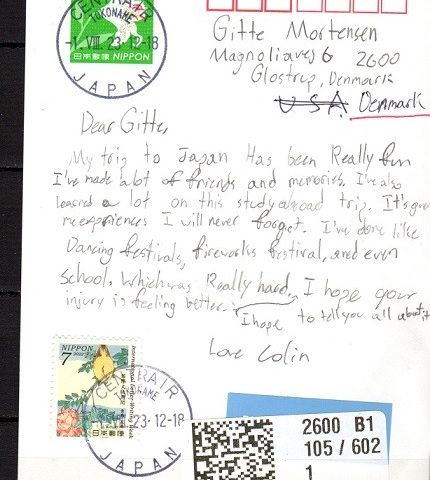 CENTRAIR
TOKONAME
-1. VIII. 23-12-18
日本郵便 NIPPON
JAPAN
Gitte Mortensen
Magnoliavej 6 2600
Glostrup, Denmark
USA Denmark
Dear Gitte,
My trip to Japan Has been Really fun
I've made alot of friends and memories. I've also
learned a lot on this studyabroad trip. It's given
me experiences I will never forget. I've done like
Dancing festivals, fireworks festival, and even
School. Which was Really hard. I hope your
injury is feeling better.
I hope to tell you all about it
Love Colin
NIPPON
7
International Letter Writing Week
日本郵便
CENTRAIR
TOKONAME
23-12-18
JAPAN
2600 B1
105 / 602
1